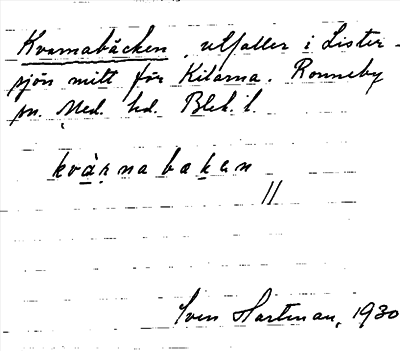 Kvarnabäcken, utfaller i Lister-
sjön mitt för Kilarna. Ronneby
sn. Med. hd. Blek. l.
kvarnabakęn
Sven Hartman, 1930